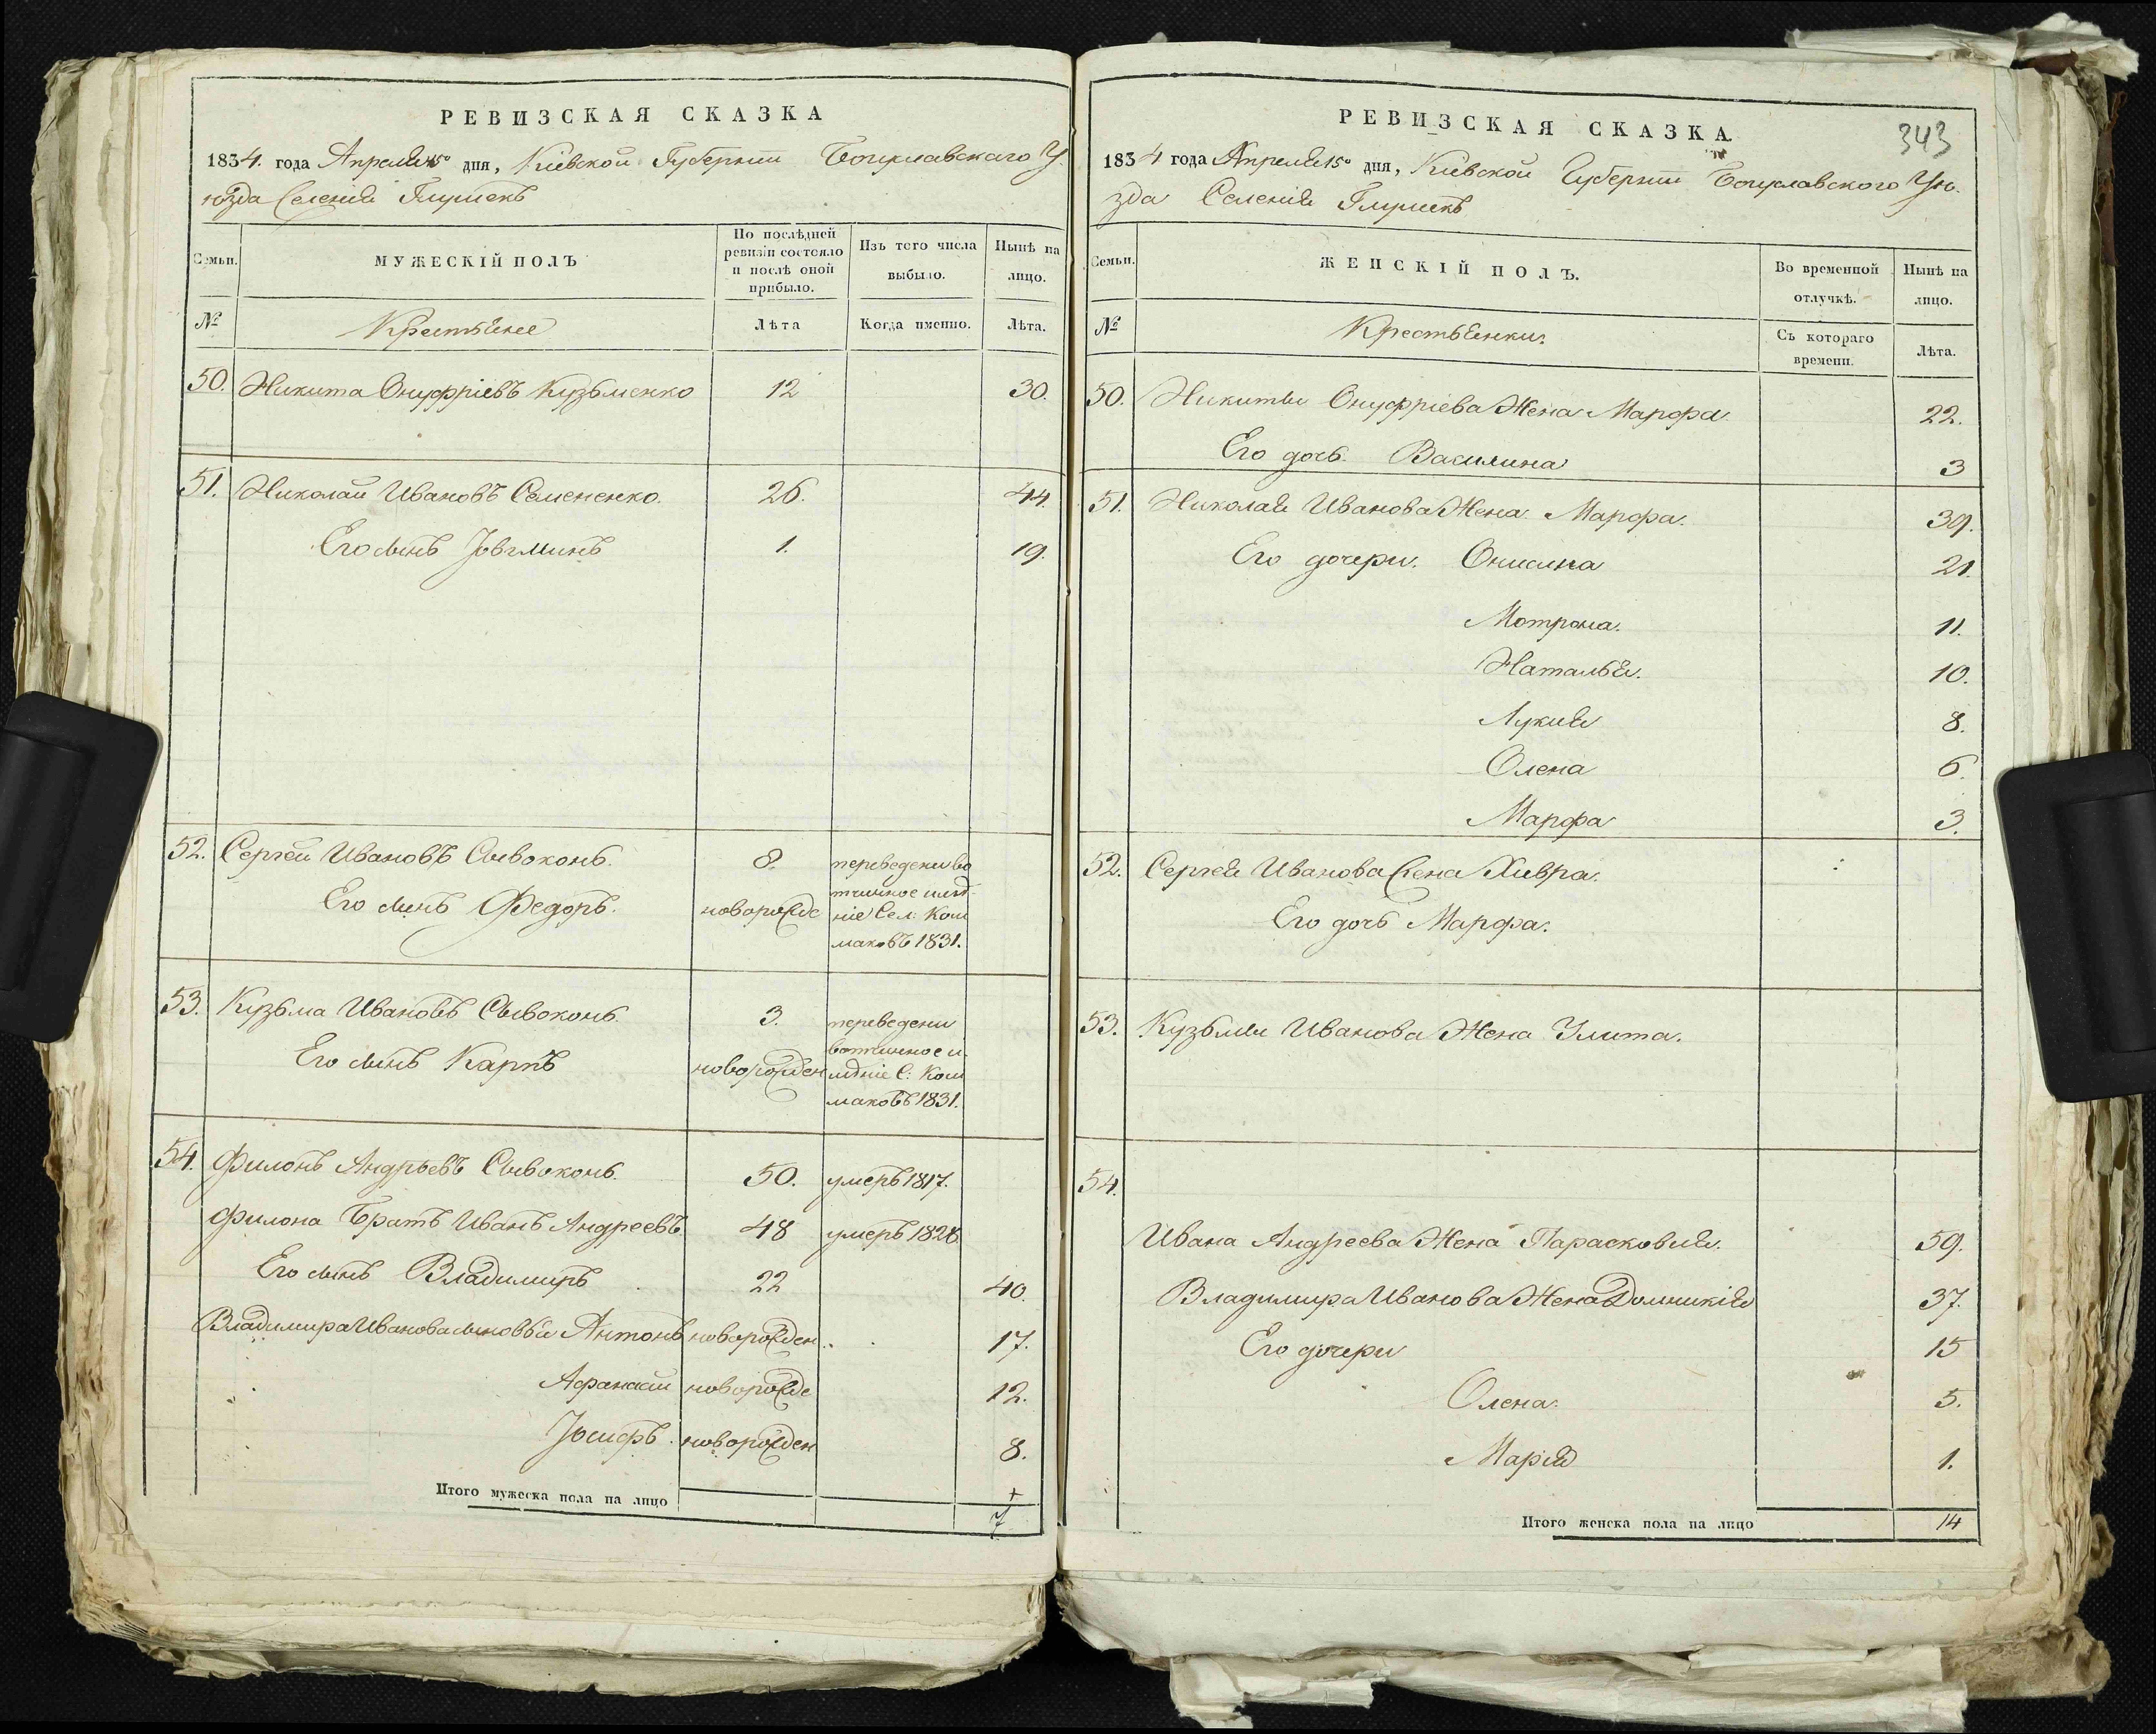 РЕВИЗСКАЯ СКАЗКА
1834. года Апреля 15º дня, Кіевской Губерніи Богуславскаго У
ѣзда Селенія Глушекъ
Семьи.
МУЖЕСКІЙ ПОЛЪ
По послѣдней ревизіи состояло и послѣ оной прибыло.
Изъ того числа выбыло.
Нынѣ на лицо.
№
Крестьяне
Лѣта
Когда именно.
Лѣта.
50. Никита Онуфріевъ Кузьменко 12 30.
51. Николай Ивановъ Семененко. 26. 44.
Его сынъ 1. 19.
52. Сергей Ивановъ Сывоконь. 8. переведени во
тчинное имѣ-
Его сынъ Федоръ. новорожде ніе Сел: Кош
маковъ 1831.
53. Кузьма Ивановъ Сывоконь. 3. переведени
вотчинное и-
Его сынъ Карпъ новорожден мѣніе С: Кош
маковъ 1831.
54. Филонъ Андрѣевъ Сывоконь. 50. умеръ 1817.
Филона Братъ Иванъ Андреевъ 48 умеръ 1826.
Его сынъ Владимиръ 22 40.
Владимира Иванова сыновья Антонъ новорожден. 17.
Афанасій новорожде 12.
Іосифъ. новорожден 8.
Итого мужеска пола на лицо 7
РЕВИЗСКАЯ СКАЗКА
343
1834 года Апреля 15º дня, Кіевской Губерніи Богуславского Уѣ-
зда Селенія Глушекъ
Семьи.
ЖЕНСКІЙ ПОЛЪ.
Во временной отлучкѣ.
Нынѣ на лицо.
№
Крестьянки.
Съ котораго времени.
Лѣта.
50. Никиты Онуфріева Жена Марфа. 22.
Его дочь. Василина 3
51. Николая Иванова Жена. Марфа. 39.
Его дочери. Онисина 21.
Мотрона. 11.
Наталья. 10.
Лукия 8.
Олена 6.
Марфа 3.
52. Сергея Иванова Жена Хивра.
Его дочь Марфа.
53. Кузьмы Иванова Жена Улита.
54.
Ивана Андреева Жена Парасковия. 59.
Владимира Иванова Жена Домникія 37.
Его дочери 15
Олена. 5.
Марія 1.
Итого женска пола на лицо 14